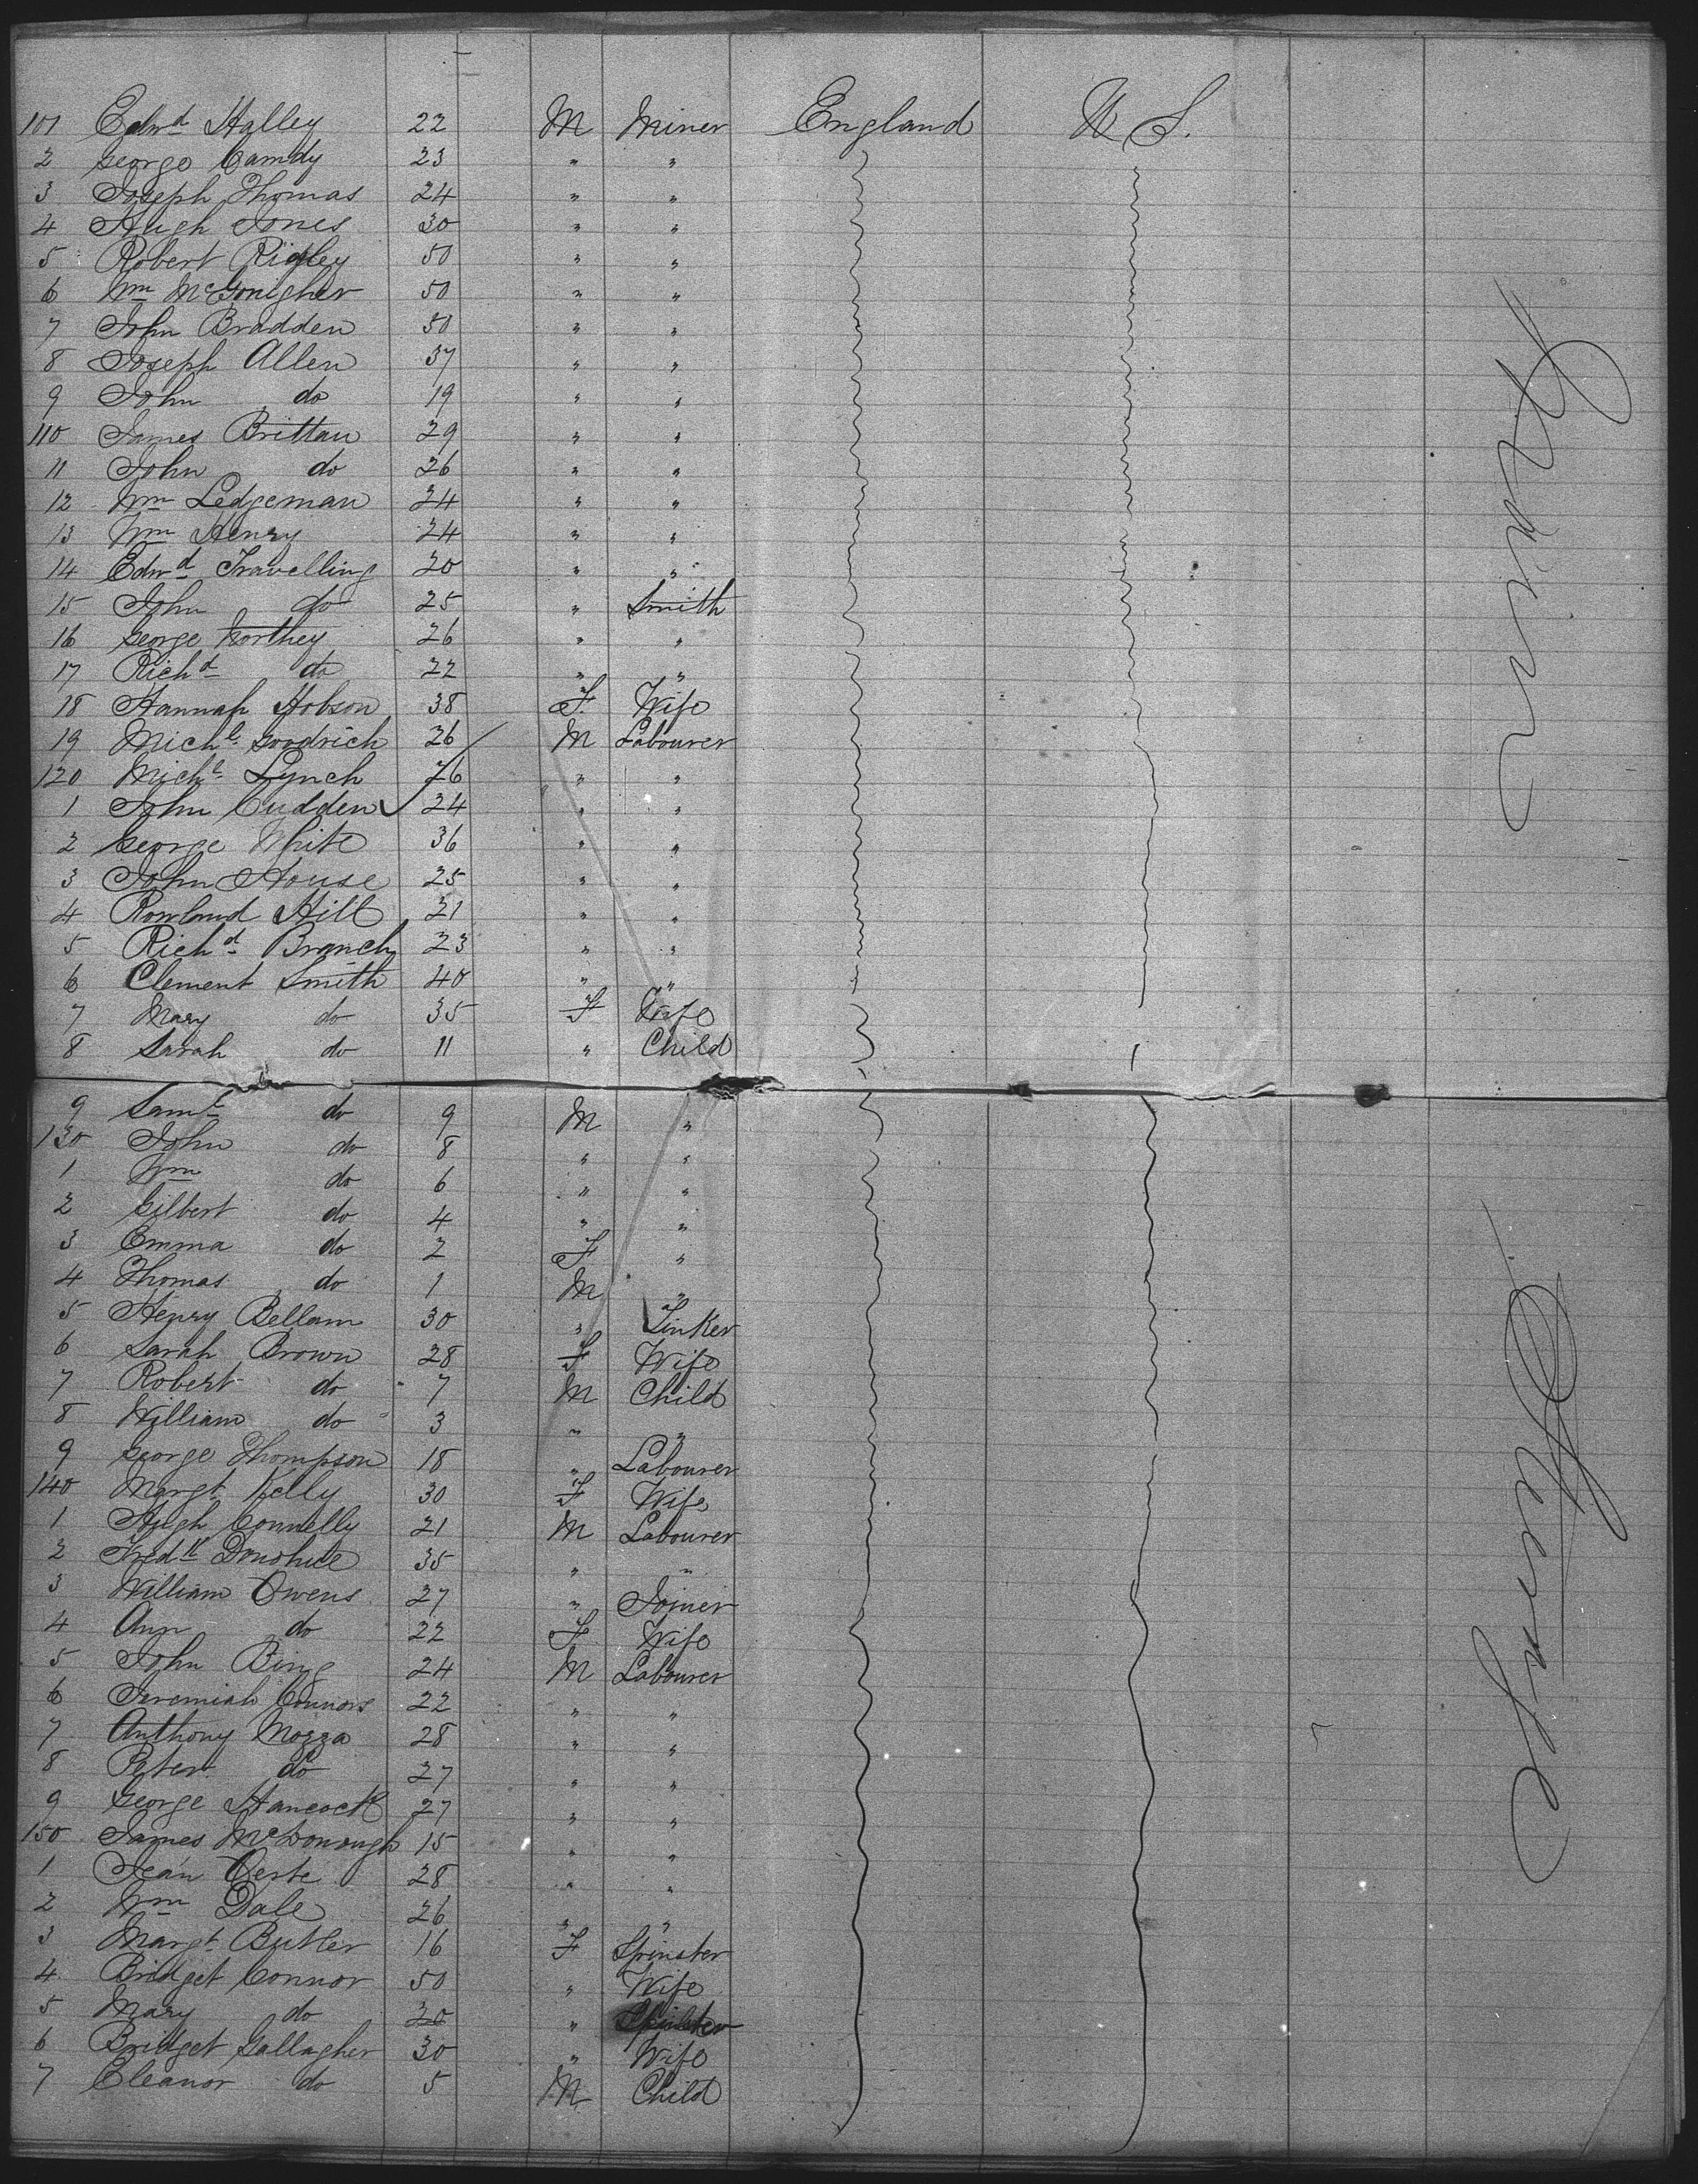 101 Edwd Halley 22 M Miner England U S.
2 George Camdy 23 " "
3 Joseph Thomas 24 " "
4 Hugh Jones 30 " "
5 Robert Rigley 50 " "
6 Wm McGonigher 50 " "
7 John Bradden 50 " "
8 Joseph Allen 37 " "
9 John do 19 " "
110 James Brittan 29 " "
11 John do 26 " "
12 Wm Ledgeman 24 " "
13 Wm Henry 24 " "
14 Edwd Travelling 20 " "
15 John do 25 " Smith
16 George Northey 26 " "
17 Richd do 22 " "
18 Hannah Hobson 38 F Wife
19 Michl Goodrich 26 M Labourer
120 Michl Lynch 26 " "
1 John Cudden 24 " "
2 George White 36 " "
3 John House 25 " "
4 Rowland Hill 21 " "
5 Richd Branch 23 " "
6 Clement Smith 40 " "
7 Mary do 35 F Wife
8 Sarah do 11 " Child
9 Saml do 9 M "
130 John do 8 " "
1 Wm do 6 " "
2 Gilbert do 4 " "
3 Emma do 2 F "
4 Thomas do 1 M "
5 Henry Bellam 30 " Tinker
6 Sarah Brown 28 F Wife
7 Robert do 7 M Child
8 William do 3 " "
9 George Thompson 18 " Labourer
140 Margt Kelly 30 F Wife
1 Hugh Connelly 21 M Labourer
2 Fredk Donohue 35 " "
3 William Owens 27 " Joiner
4 Ann do 22 F Wife
5 John Bing 24 M Labourer
6 Jeremiah Connors 22 " "
7 Anthony Mozza 28 " "
8 Peter do 27 " "
9 George Hancock 27 " "
150 James McDonough 15 " "
1 Jean Oerte 28 " "
2 Wm Dale 26 " "
3 Margt Butler 16 F Spinster
4 Bridget Connor 50 " Wife
5 Mary do 20 " Spinster
6 Bridget Gallagher 30 " Wife
7 Eleanor do 5 M Child